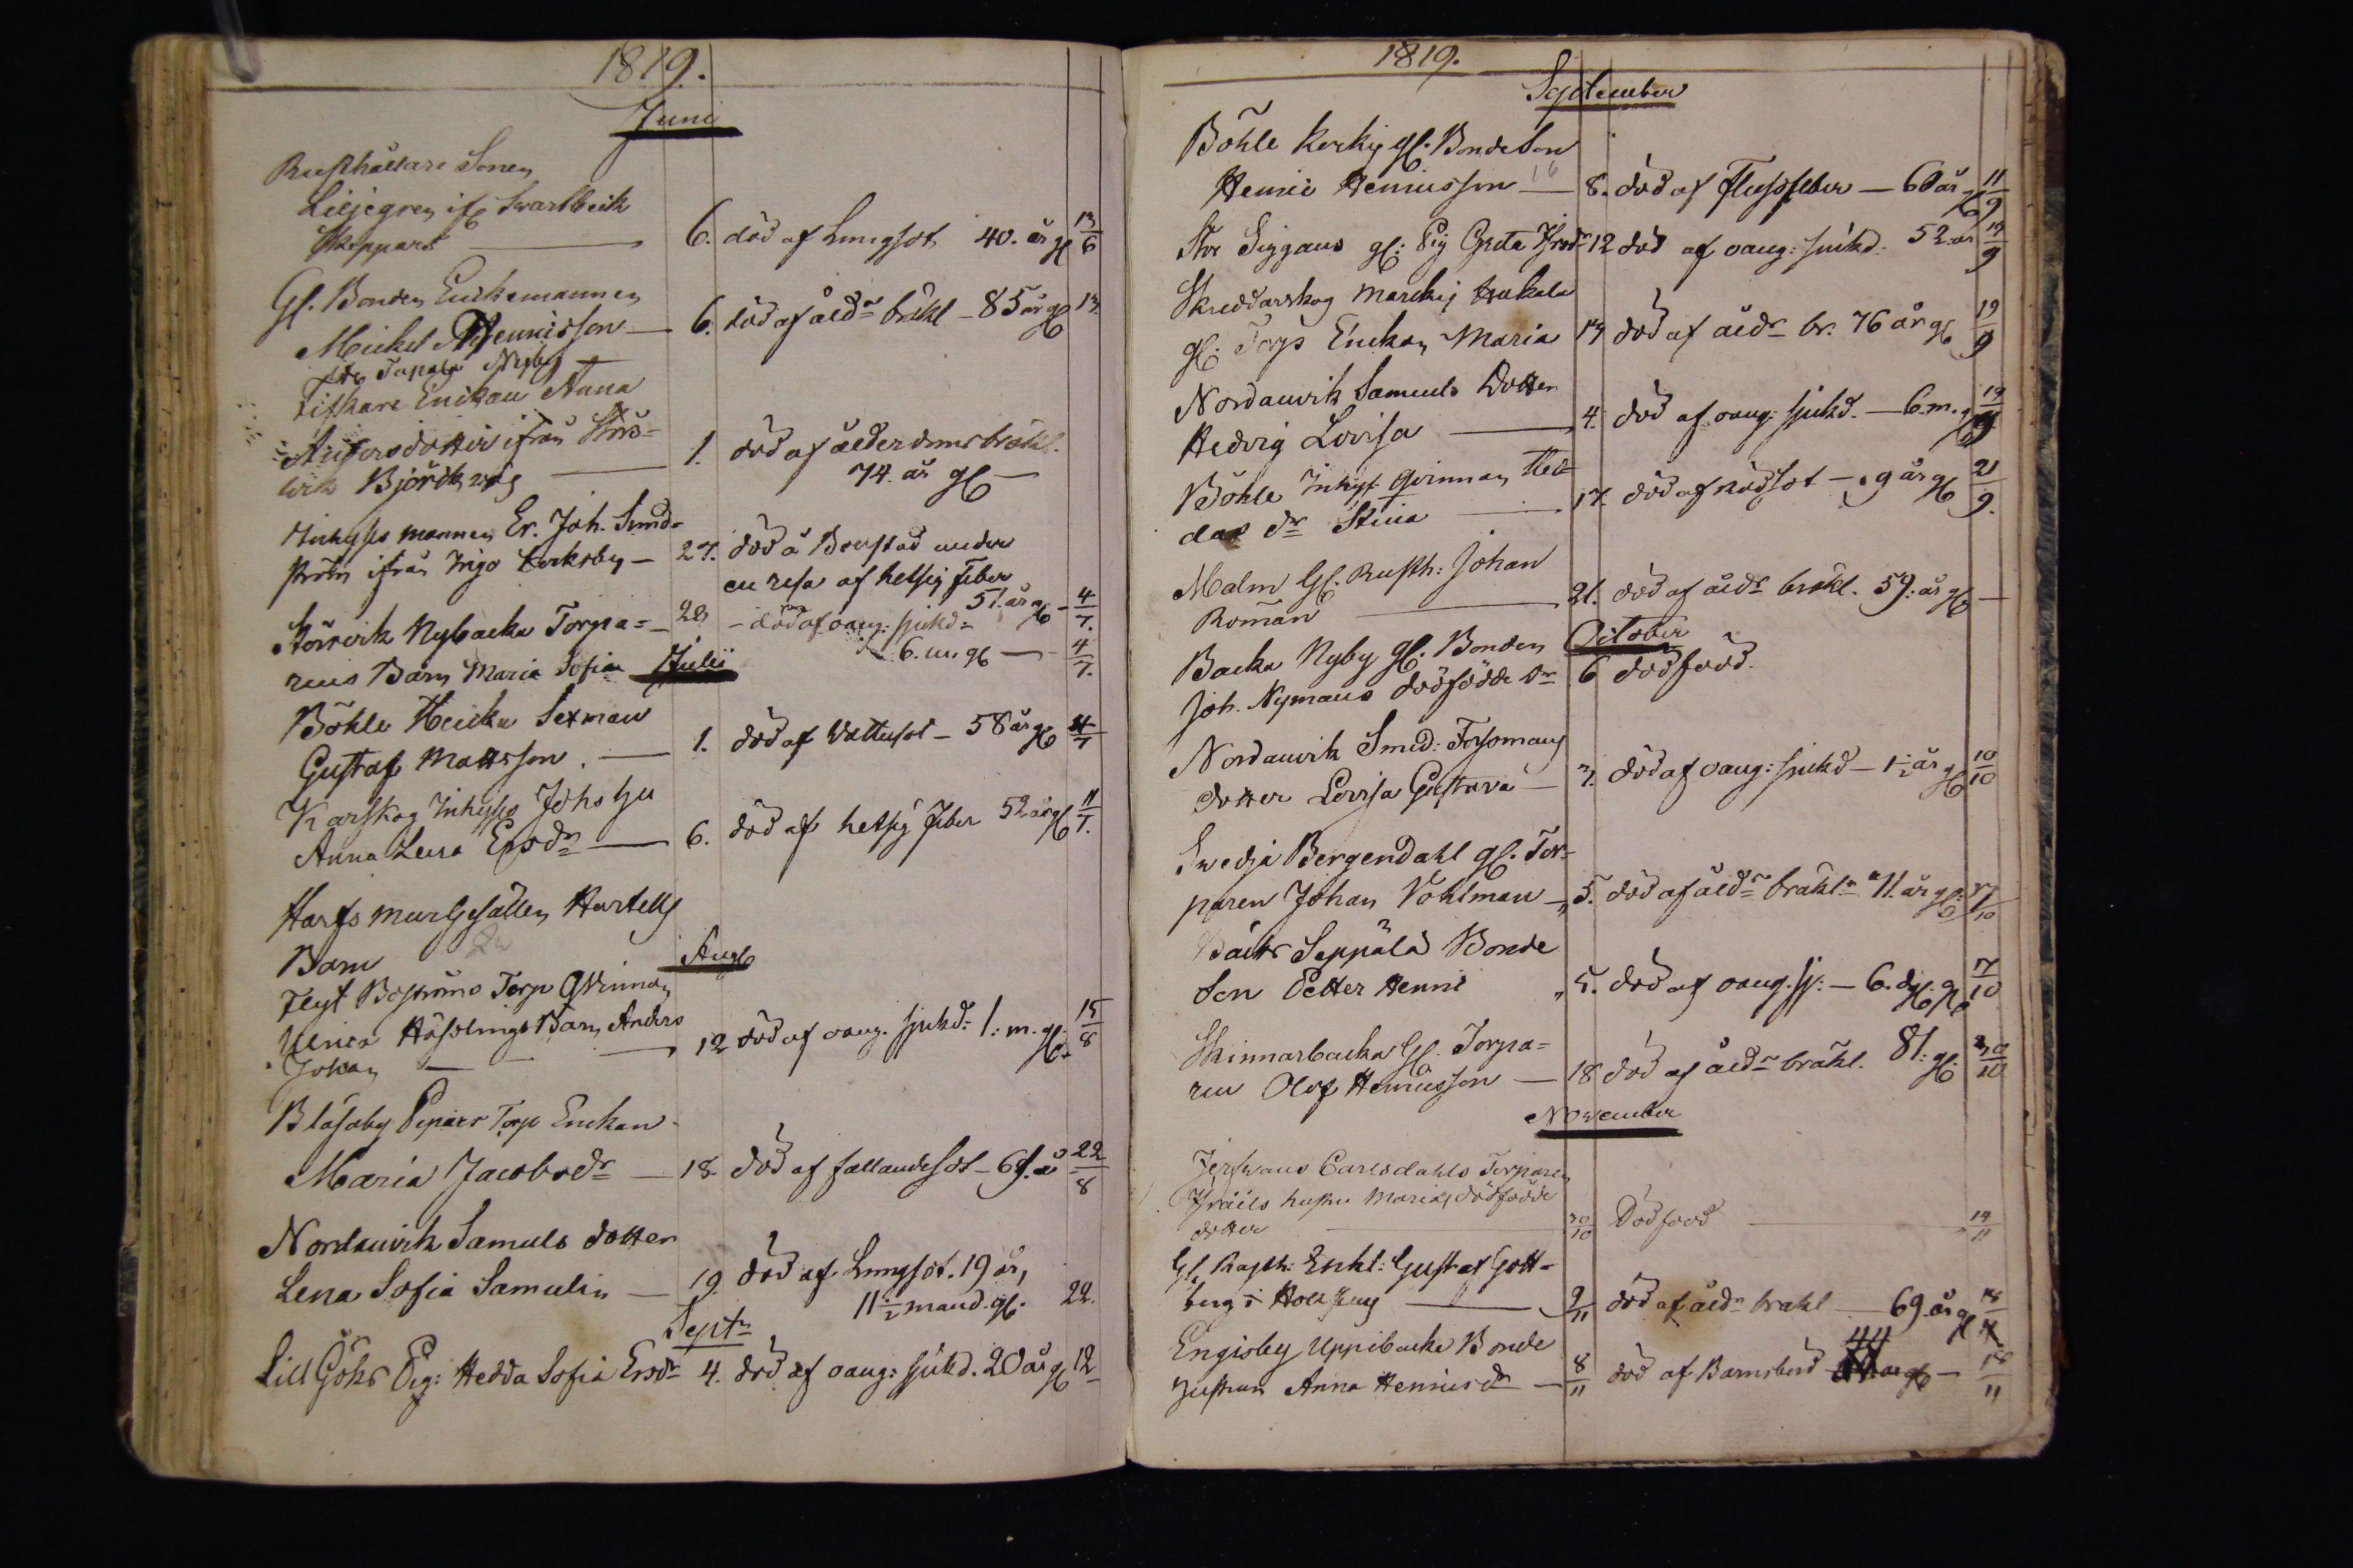 1819.
Juni
Rusthållare Sonen
Liljegren if Svartbeck
Skeppars — 6. död af Lungsot 40. år gl 13/6
Gl. Bonden Enkemannen
Michel Hennisson — 6. död af åldr bräkl – 85 år gl 13.
Nyby
Fiskare Enckan Anna
Andersdotter ifrån Stor=
wik Björkwik — 1. död af ålderdoms bräckl.
74. år gl —
Inhyses mannen Er. Joh. Sund-
ström ifrån Erksby — 27. död å Borgstad under
en resa af hetsig feber
51. år gl – 4/7.
Störsvik Nybacka Torpa= 28 – död af oang: sjukd=
rens Barn Maria Sofia 6. m. gl — 4/7.
Julii
Böhle Heicka Sexman
Gustaf Mattsson. — 1. död af Vattusot – 58 år gl 4/7
Karskog Inhyses Johs hu
Anna Lena Ersdr — 6. död af hetsig feber 52 år gl 11/7.
Harfs murgesällen Hartells
Barn
Aug
Flyt Boströms Torp Qwinnan
Ulrica Barn Anders
Johan — 12 död af oang. sjukd= 1. m. gl. 15/8
Blåsaby Torp Enckan
Maria Jacobsdr — 18. död af fallandesot – 69. år 22/8
Nordanvik Samuls dotter
Lena Sofia Samulin — 19. död af Lungsot. 19 år,
11½ månad. gl. 22.
Septr
Lill Göhs Pig: Hedda Sofia Ersdr 4. död af oang: sjukd. 20 år gl 12
1819.
September
Böhle Kerky gl. Bonde Son
Henric Henricsson — 16 8. död af Flussfeber — 60 år gl 11/9
Stor Siggans gl: Pig Greta Isrsdr 12 död af oang: sjukd. 52. år 19/9
Skreddarskog
gl. Torps Enckan Maria 14 död af åldr br. 76 år gl 19/9
Nordanvik Samuels Dotter
Hedvig Lovisa — 4. död af oang: sjukd. — 6. m. gl 19/9
Böhle Inhys qvinnan Hed-
das dr Stina — 17. död af rödsot — 9 år gl 21/9.
Malm Gl. Rusth: Johan
Roman — 21. död af åldr bräkl. 59. år gl —
October
Backa Nyby gl. Bonden
Joh. Nymans dödfödde dr 6 dödfödd.
Nordanvik Smed: Forsmans
dotter Lovisa Gustava — 7. död af oang: sjukd — 1½ år gl 10/10
Swedja Bergendahl gl. Tor-
paren Johan Vohlman — 5. död af åldr bräkl 71. år gl: 17/10
Bäcks Seppälä Bonde
Son Petter Henric „ 5. död af oang. sj: — 6. dg. gl 17/10
Skinnarbacka Gl. Torpa=
ren Olof Henricsson — 18 död af åldr bräkl. 81: gl. 30/10
November
Carlsdahls Torparen
Israels hustru Maria, dödfödde
dotter — 30/10 Dödfödd — 14/11
Gl. Rusth: Enkl: Gustaf Gott-
berg i — 9/11 död af åldr bräkl — 69. år gl 14/11
Engisby Uppibacka Bonde
hustrun Anna Henricsdr — 8/11 död af Barnsbörd 44 år gl — 18/11